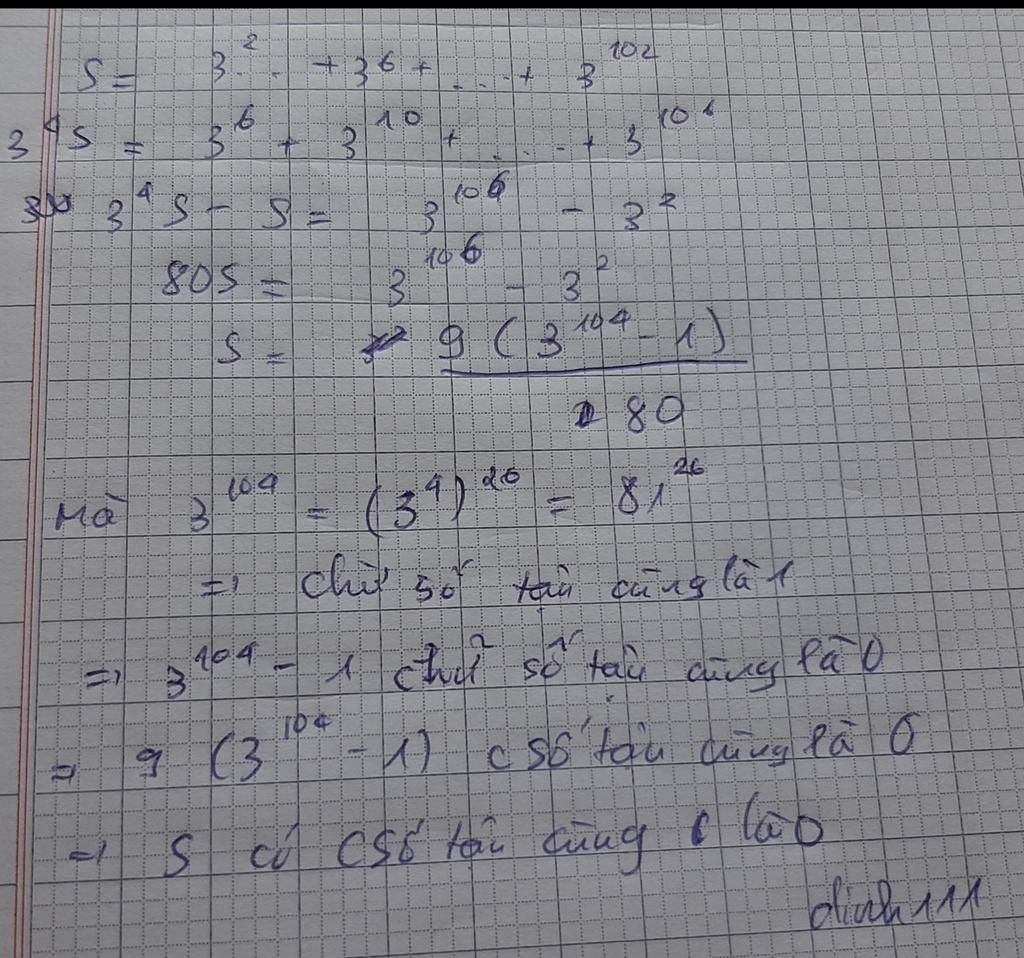 S = 3² . . + 3⁶ + . . . + 3¹⁰²
3⁴S = 3⁶ + 3¹⁰ + . . . . + 3¹⁰⁶
3⁴S - S = 3¹⁰⁶ - 3²
80S = 3¹⁰⁶ - 3²
S = 9 ( 3¹⁰⁴ - 1 )
80
Mà 3¹⁰⁴ = (3⁴)²⁶ = 81²⁶
=> Chữ số tận cùng là 1
=> 3¹⁰⁴ - 1 chữ số tận cùng là 0
=> 9 (3¹⁰⁴ - 1) c số tận cùng là 0
=> S có c số tận cùng là 0
dinh111